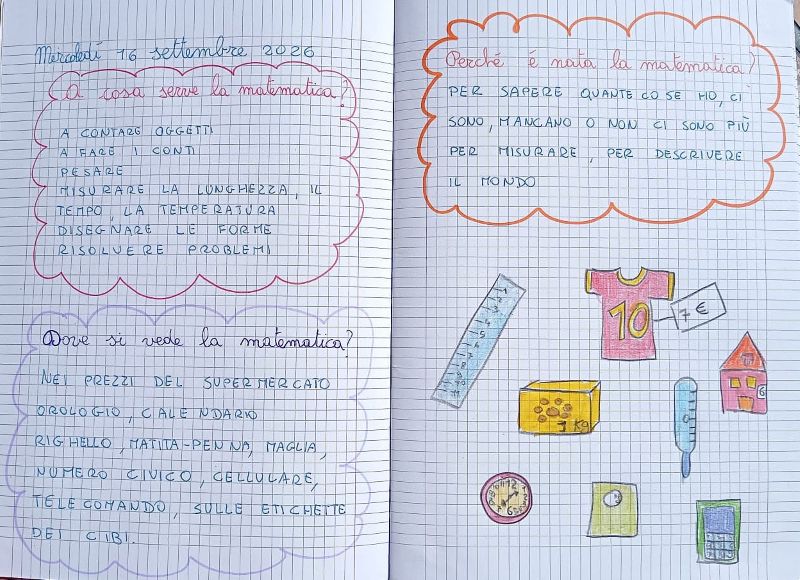 Mercoledì 16 settembre 2026
A cosa serve la matematica?
A CONTARE OGGETTI
A FARE I CONTI
PESARE
MISURARE LA LUNGHEZZA, IL
TEMPO, LA TEMPERATURA
DISEGNARE LE FORME
RISOLVERE PROBLEMI
Dove si vede la matematica?
NEI PREZZI DEL SUPERMERCATO
OROLOGIO, CALENDARIO
RIGHELLO, MATITA-PENNA, MAGLIA,
NUMERO CIVICO, CELLULARE,
TELECOMANDO, SULLE ETICHETTE
DEI CIBI.
Perché é nata la matematica?
PER SAPERE QUANTE COSE HO, CI
SONO, MANCANO O NON CI SONO PIÙ
PER MISURARE, PER DESCRIVERE
IL MONDO
10
7 €
1 Kg
6